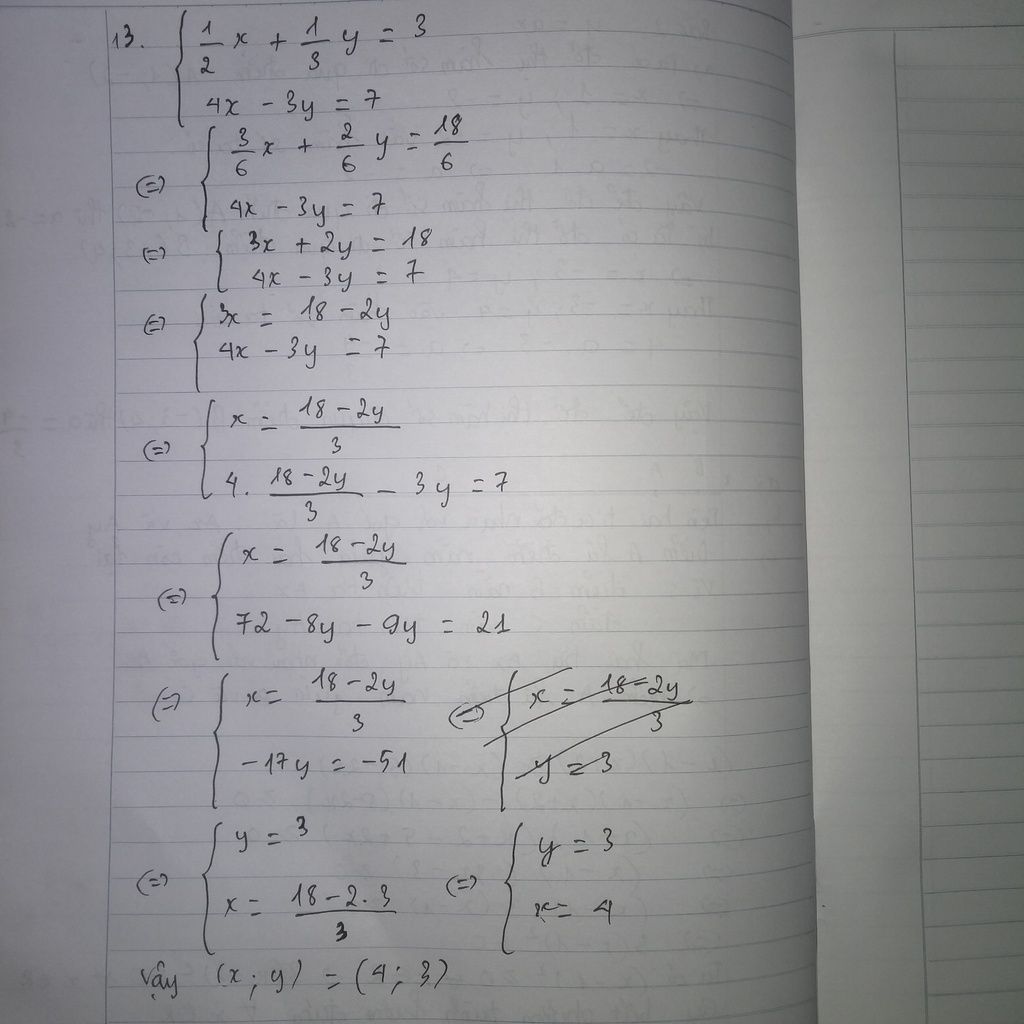 13. { 1/2 x + 1/3 y = 3
4x - 3y = 7
(=) { 3/6 x + 2/6 y = 18/6
4x - 3y = 7
(=) { 3x + 2y = 18
4x - 3y = 7
(=) { 3x = 18 - 2y
4x - 3y = 7
(=) { x = (18 - 2y)/3
4. (18 - 2y)/3 - 3y = 7
(=) { x = (18 - 2y)/3
72 - 8y - 9y = 21
(=) { x = (18 - 2y)/3
-17y = -51
(=) { x = (18 - 2y)/3
y = 3
(=) { y = 3
x = (18 - 2.3)/3
(=) { y = 3
x = 4
Vậy (x; y) = (4; 3)